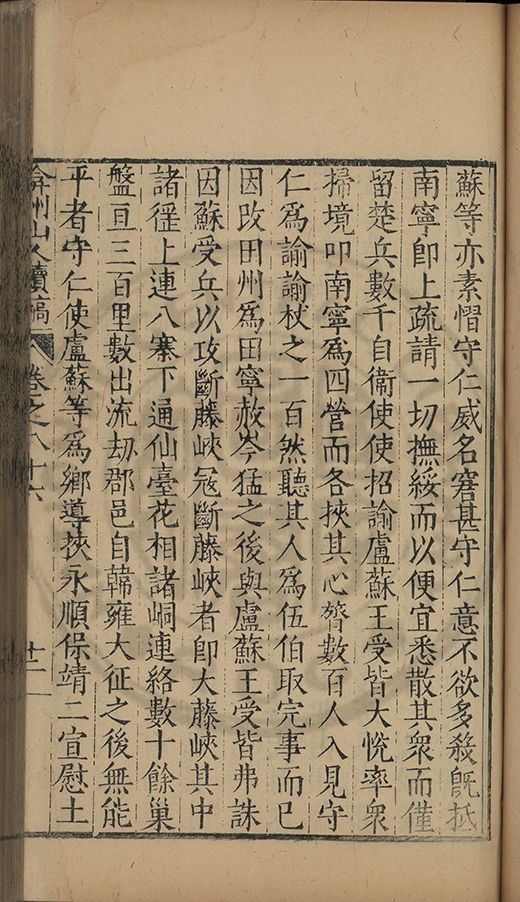 蘇等亦素慴守仁威名窘甚守仁意不欲多殺旣抵
南寧卽上疏請一切撫綏而以便宜悉散其衆而僅
留楚兵數千自衞使使招諭盧蘇王受皆大恱率衆
掃境叩南寧爲四營而各挾其心膂數百人入見守
仁爲諭諭杖之一百然聽其人爲伍伯取完事而已
因改田州爲田寧赦岑猛之後與盧蘇王受皆弗誅
因蘇受兵以攻斷藤峽冦斷藤峽者卽大藤峽其中
諸徭上連八寨下通仙臺花相諸峒連絡數十餘巢
盤亘三百里數出流劫郡邑自韓雍大征之後無能
平者守仁使盧蘇等爲鄉導挾永順保靖二宣慰土
弇州山人續稿 卷之八十六 十二